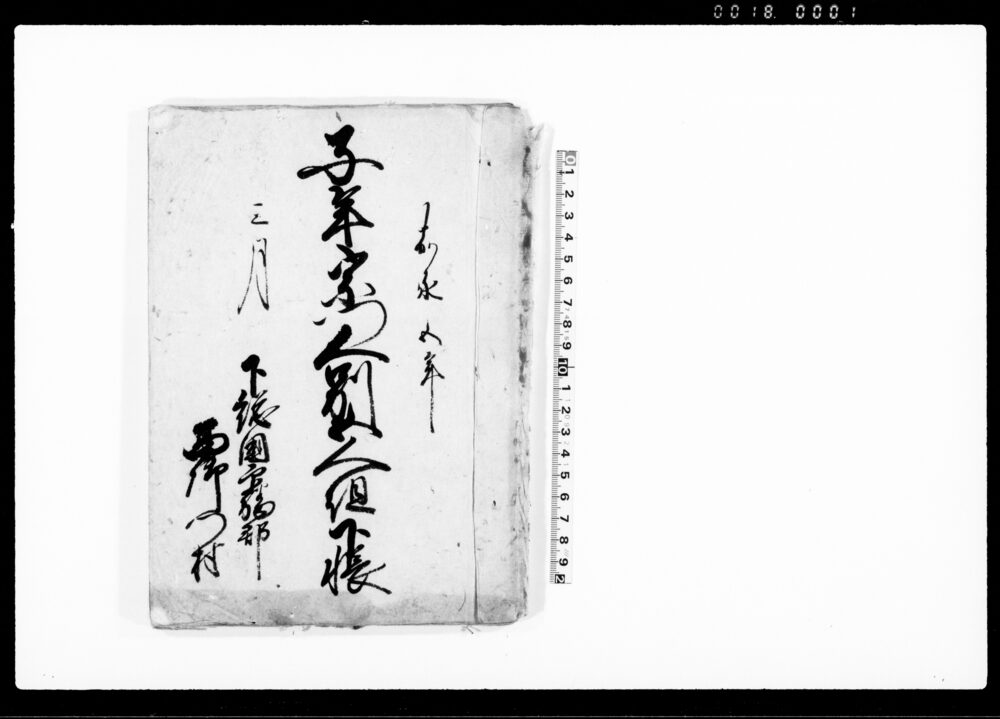 0018. 0001
嘉永五年
子年宗門人別五人組下帳
三月
下総國 郡
西御門村
0 1 2 3 4 5 6 7 8 9 10 1 2 3 4 5 6 7 8 9 2